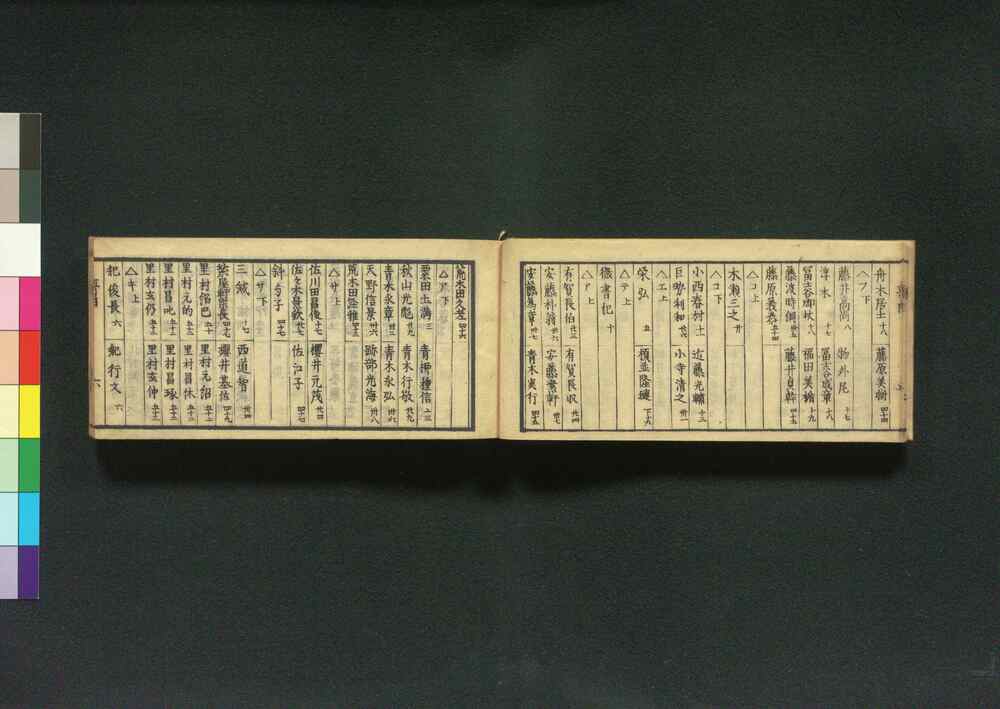 舟木居士 十八 藤原美樹 四十四
〽フ下
藤井高尚 八 物外尼 十七
淳木 十七 冨士谷成章 十八
冨士谷御杖 十八 福田美楯 十九
藤波時綱 四十五 藤井貞幹 四十五
藤原義恭 五十四
〽コ上
木瀬三之 廿
〽コ下
小西春村 十一 近藤光輔 十三
巨勢利和 廿六 小寺清之 卅一
〽エ上
榮弘 五
〽テ上
徹書記 十
〽ア上
有賀長伯 廿三 有賀長収 廿四
安藤朴翁 廿六 安藤 廿七
安藤為章 廿七 青木實行 四十五
荒木田久老 四十六
△ア下
粟田土満 三 青柳種信 十三
秋山光彪 廿九 青木行敬 廿九
青木永章 卅三 青木永弘 卅六
天野信景 卅六 跡部光海 卅八
荒木田経雅 四十六
△サ上
佐川田昌俊 十七 櫻井元茂 廿四
佐々木景欽 廿七 佐江子 四十七
斜与子 四十七
△サ下
三 七 西道智
長 四十 櫻井基佐 四十九
里村紹巴 五十 里村元紹 五十三
里村元的 五十三 里村昌休 五十三
里村昌叱 五十三 里村昌琢 五十三
里村玄仍 五十三 里村玄仲 五十三
△キ上
紀俊長 六 紀行文 六
六